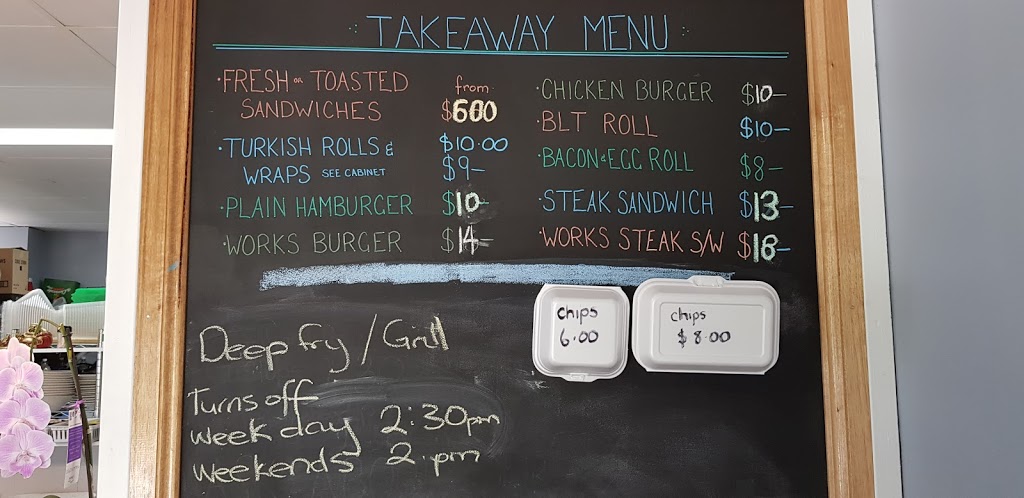 TAKEAWAY MENU
·FRESH OR TOASTED
SANDWICHES
from
$600
·TURKISH ROLLS & $10.00
WRAPS SEE CABINET $9-
·PLAIN HAMBURGER $10-
·WORKS BURGER $14-
·CHICKEN BURGER $10-
·BLT ROLL $10-
·BACON & EGG ROLL $8-
·STEAK SANDWICH $13-
·WORKS STEAK S/W $16-
chips
6.00
chips
$8.00
Deep fry / Grill
Turns off
week day 2:30pm
weekends 2.pm